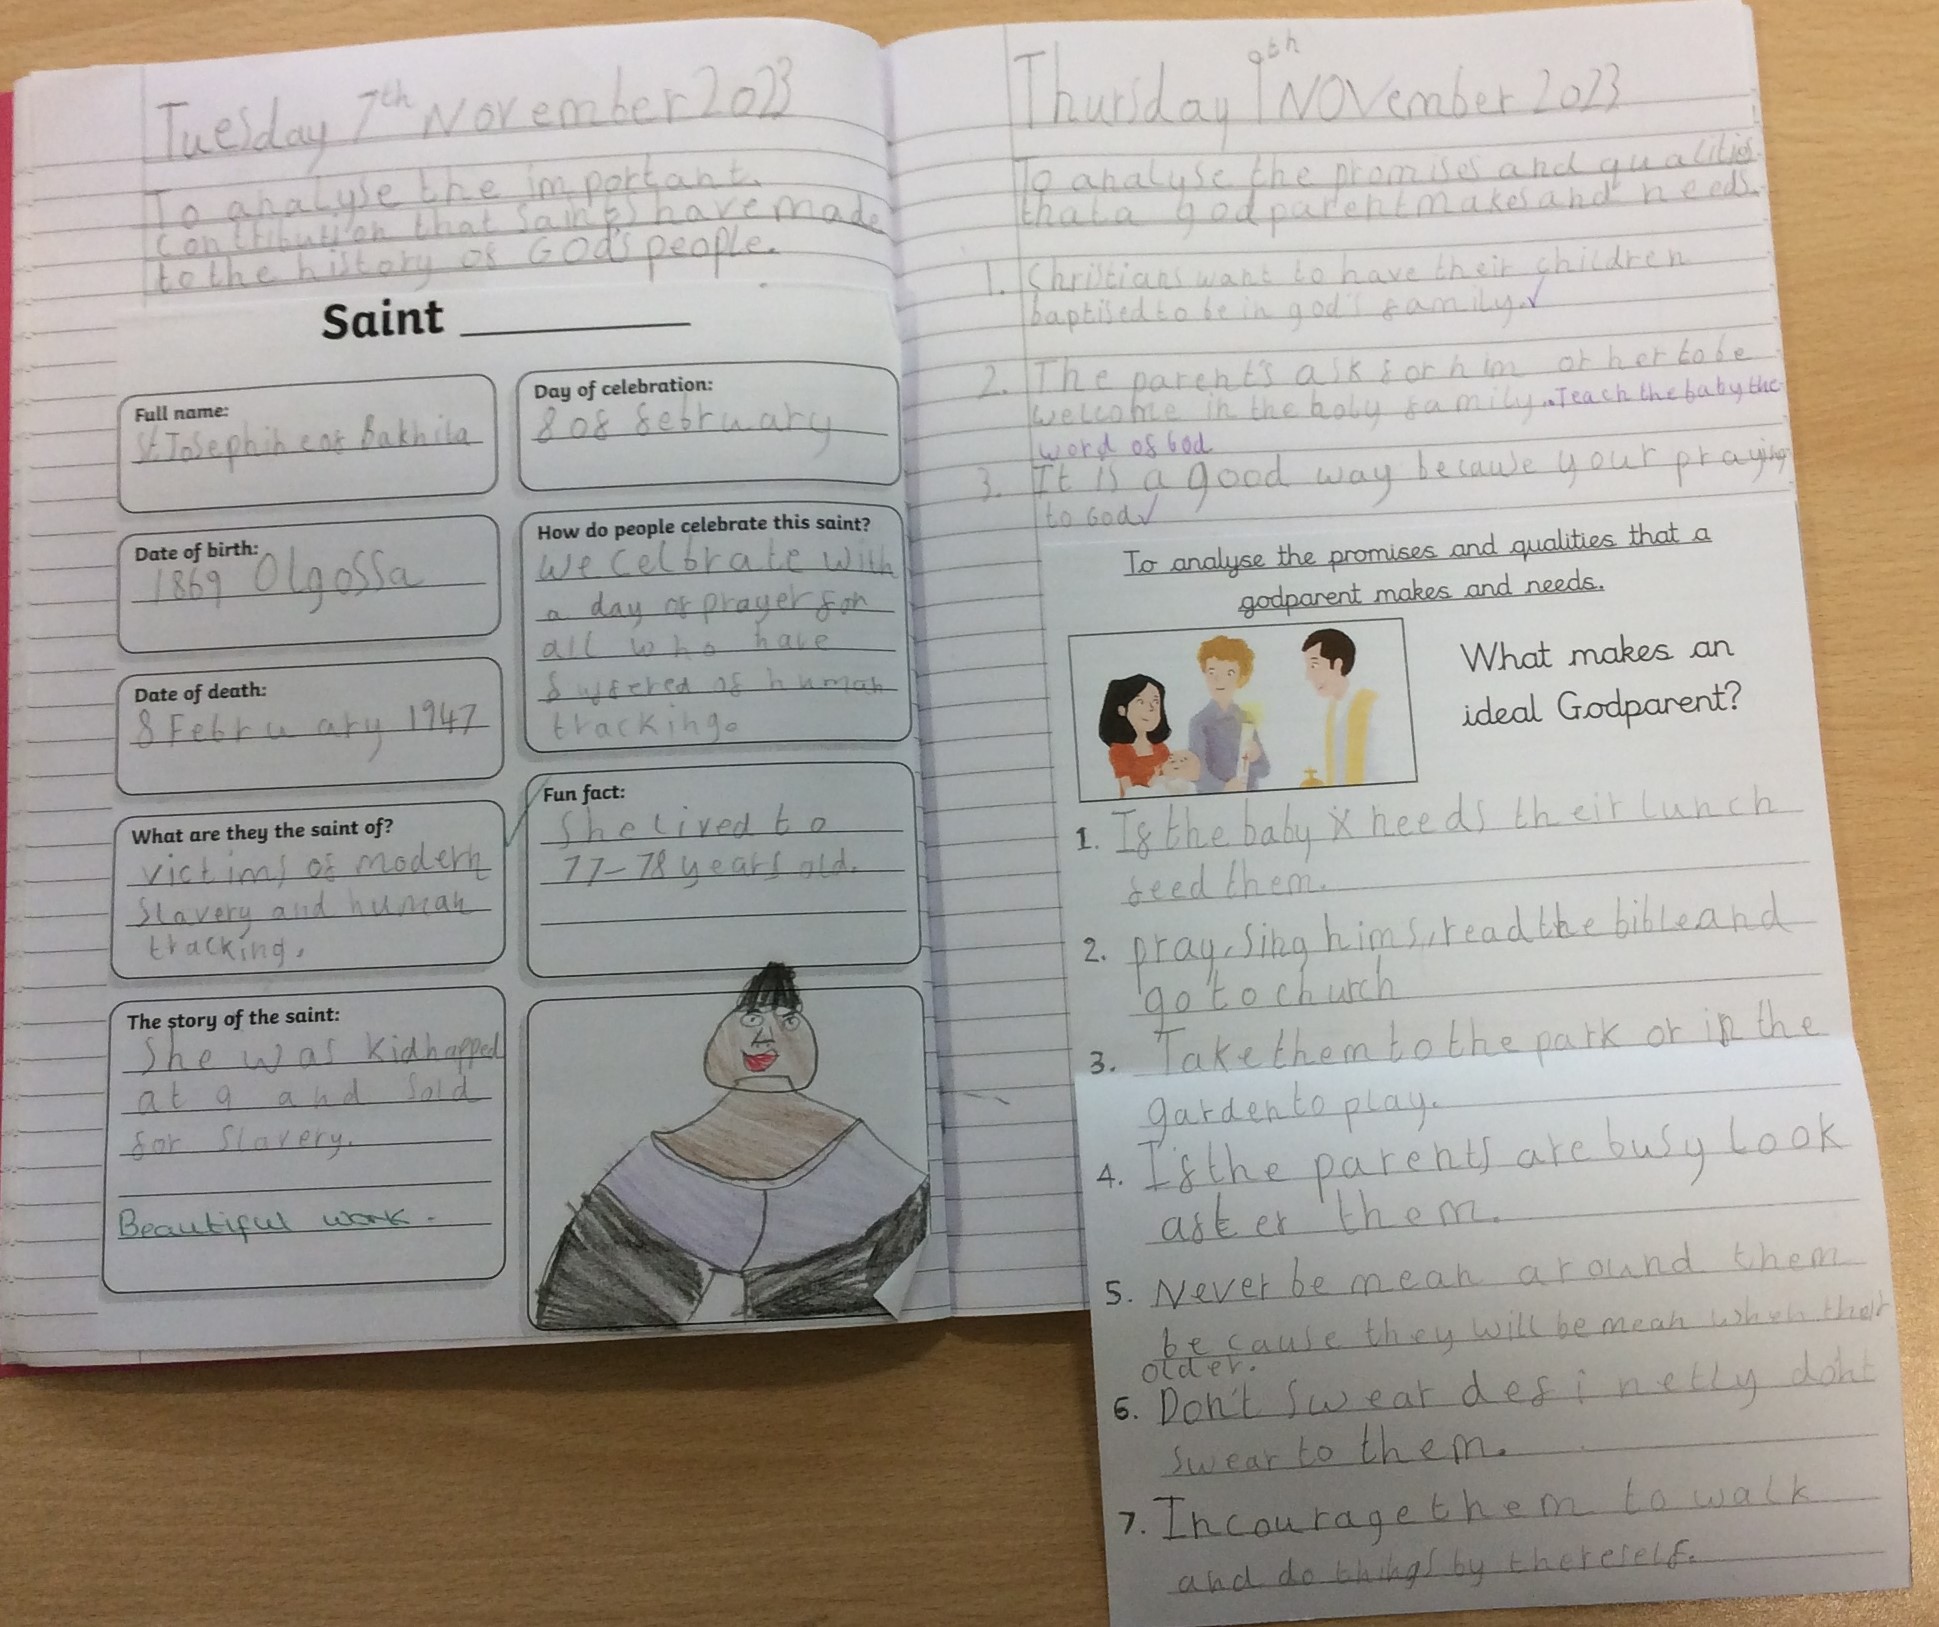 Tuesday 7th November 2023
To analyse the important
contribution that saints have made
to the history of God's people.
Saint
Full name:
St Josephine of Bakhita
Date of birth:
1869 Olgossa
Date of death:
8 February 1947
What are they the saint of?
victims of modern
slavery and human
tracking.
The story of the saint:
She was kidnapped
at 9 and sold
for slavery.
Beautiful work.
Day of celebration:
8 of february
How do people celebrate this saint?
We celbrate with
a day of prayer for
all who have
suffered of human
tracking.
Fun fact:
She lived to
77-78 years old.
Thursday 9th November 2023
To analyse the promises and qualities
that a godparent makes and needs.
1. Christians want to have their children
baptised to be in god's family.
2. The parent's ask for him or her to be
welcome in the holy family. Teach the baby the
word of God
3. It is a good way because your praying
to God
To analyse the promises and qualities that a
godparent makes and needs.
What makes an
ideal Godparent?
1. If the baby needs their lunch
feed them.
2. pray, sing hims, read the bible and
go to church
3. Take them to the park or in the
garden to play.
4. If the parents are busy look
after them.
5. Never be mean around them
because they will be mean when their
older.
6. Don't swear definetly don't
swear to them.
7. Incourage them to walk
and do things by thereself.